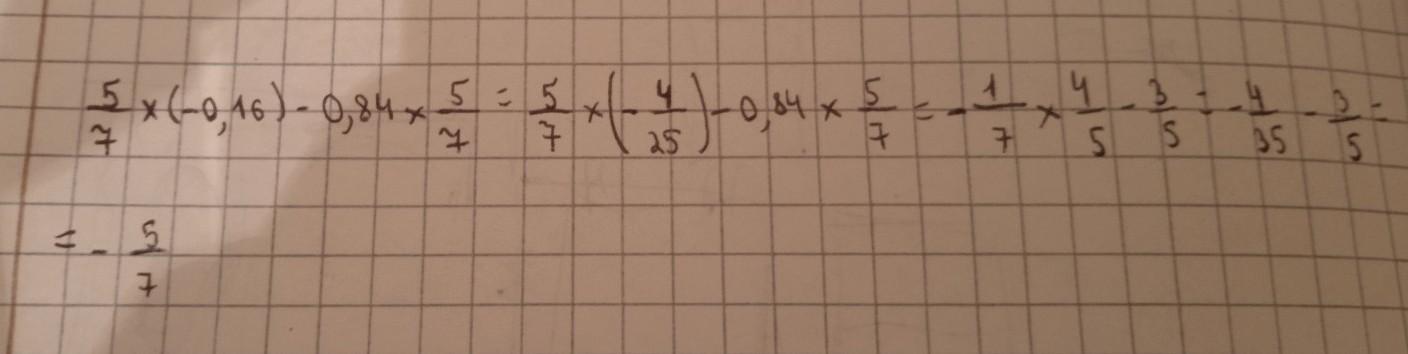 5/7 × (-0,16) - 0,84 × 5/7 = 5/7 × (- 4/25) - 0,84 × 5/7 = - 1/7 × 4/5 - 3/5 = - 4/35 - 3/5 =
= - 5/7